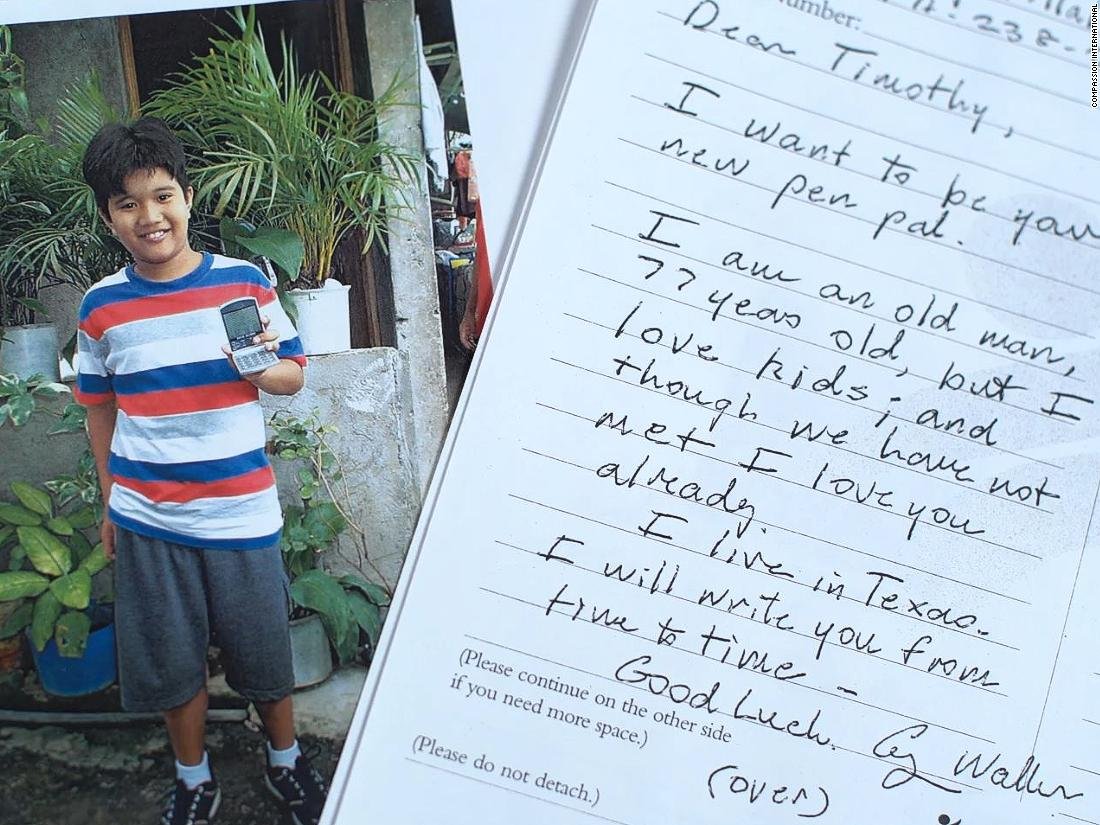 Number:
Dear Timothy,
I want to be your
new pen pal.
I am an old man,
77 years old, but I
love kids; and
though we have not
met I love you
already.
I live in Texas.
I will write you from
time to time -
Good Luck. G Walker
(Please continue on the other side
if you need more space.)
(over)
(Please do not detach.)
COMPASSION INTERNATIONAL